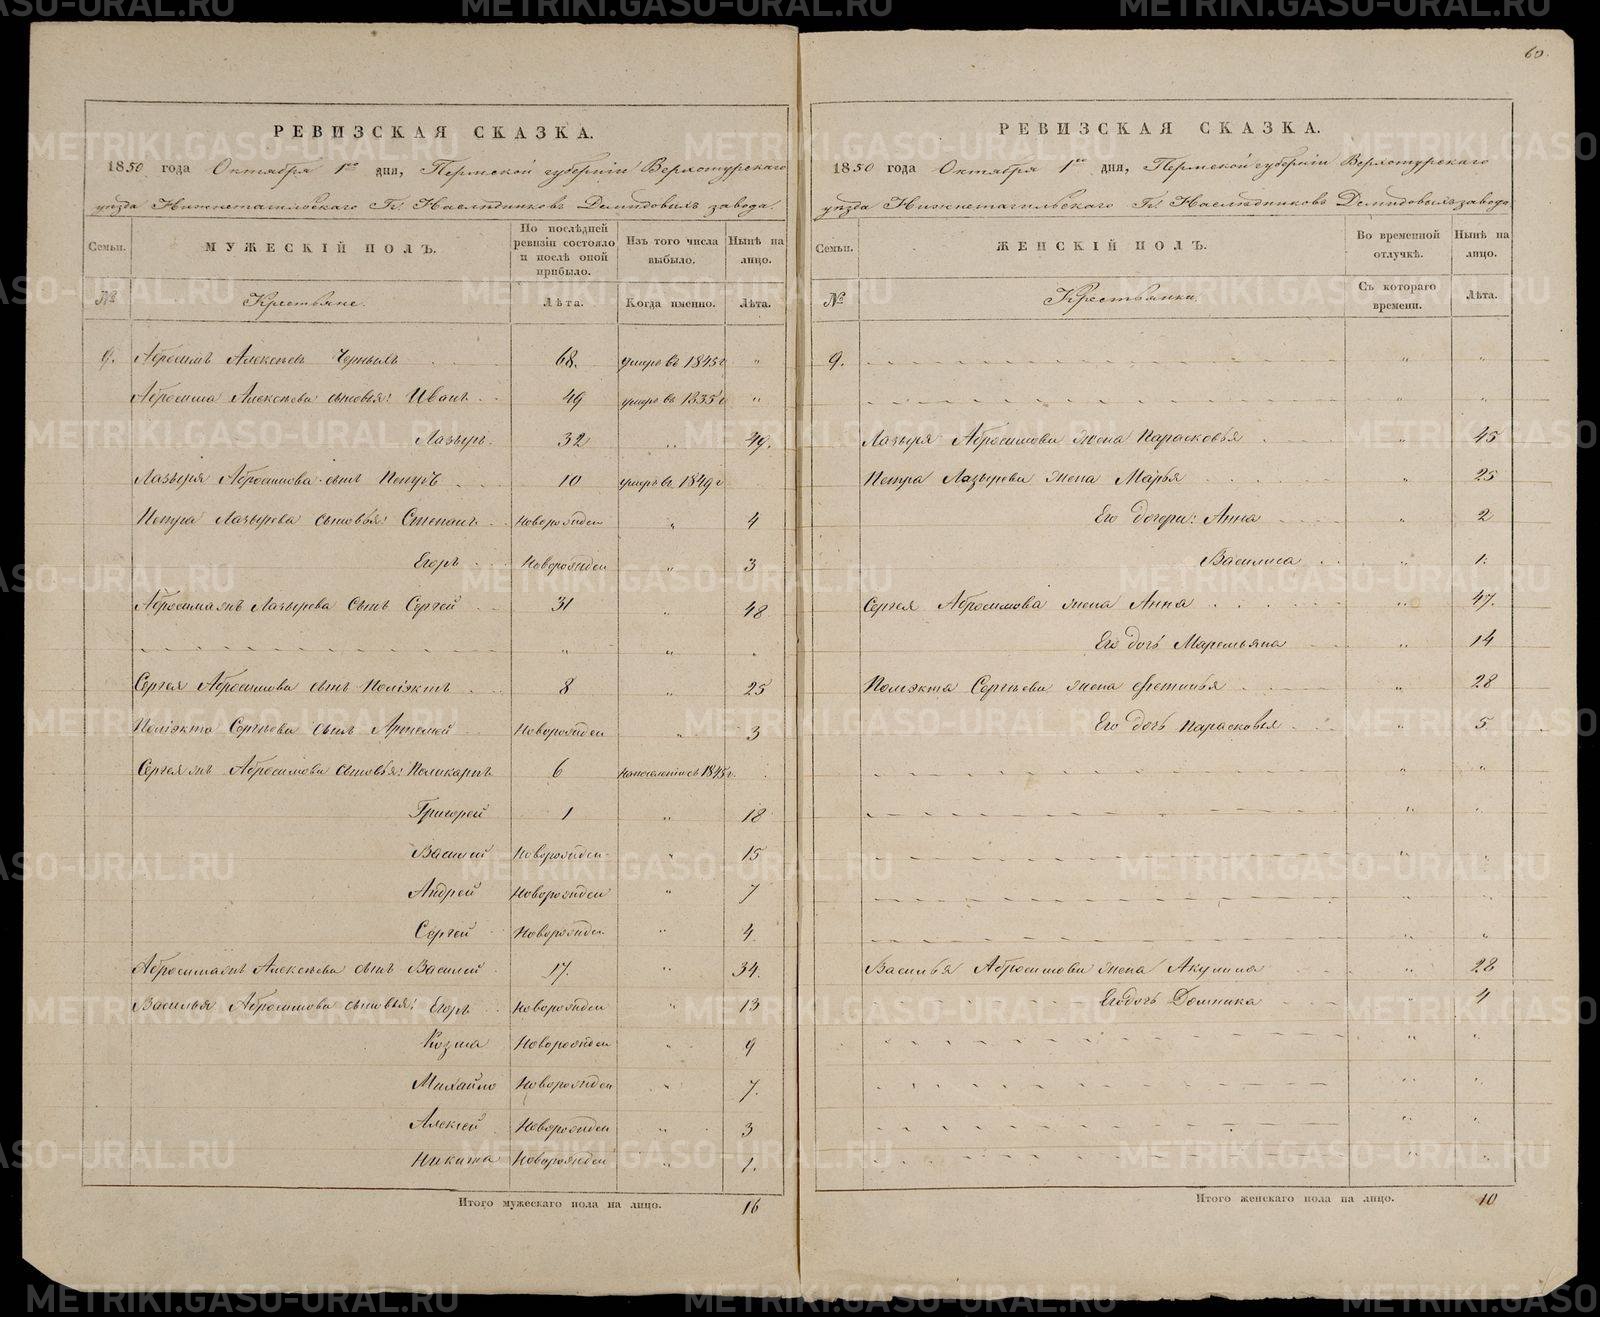 60.
РЕВИЗСКАЯ СКАЗКА.
1850 года Октября 1го дня, Пермской губерніи Верхотурскаго
уѣзда Нижнетагильскаго Гг. Наслѣдниковъ Демидовыхъ завода.
Семьи. МУЖЕСКІЙ ПОЛЪ. По послѣдней ревизіи состояло и послѣ оной прибыло. Изъ того числа выбыло. Нынѣ на лицо.
№ Крестьяне. Лѣта. Когда именно. Лѣта.
9. Абросимъ Алексѣевъ Черныхъ 68. умеръ въ 1845 г "
Абросима Алексѣева сыновья: Иванъ 49 умеръ въ 1835 г "
Лазырь 32 " 49.
Лазыря Абросимова сынъ Петръ 10 умеръ въ 1849 г
Петра Лазырева сыновья: Степанъ Новорожден " 4
Егоръ Новорожден " 3
Абросима 2й Лазырева сынъ Сергей 31 " 48
" " "
Сергея Абросимова сынъ Поліэктъ 8 " 25
Поліэкта Сергѣева сынъ Артемей Новорожден " 3
Сергея Абросимова сыновья: Поликарпъ 6 на поселеніе съ 1845 г.
Григорей 1 " 18
Василій Новорожден " 15
Андрей Новорожден " 7
Сергей Новорожден " 4
Абросима Алексѣева сынъ Василей 17. " 34.
Василья Абросимова сыновья: Егоръ Новорожден " 13
Козма Новорожден " 9
Михайло Новорожден " 7.
Алексей Новорожден " 3
Никита Новорожден " 1.
Итого мужескаго пола на лицо. 16
РЕВИЗСКАЯ СКАЗКА.
1850 года Октября 1го дня, Пермской губерніи Верхотурскаго
уѣзда Нижнетагильскаго Гг. Наслѣдниковъ Демидовыхъ завода
Семьи. ЖЕНСКІЙ ПОЛЪ. Во временной отлучкѣ. Нынѣ на лицо.
№ Крестьянки. Съ котораго времени. Лѣта.
9. " "
" "
Лазыря Абросимова жена Парасковья " 45
Петра Лазырева жена Марья " 25
Его дочери: Анна " 2
Василиса " 1.
Сергея Абросимова жена Анна " 47.
Его дочь Маремьяна " 14
Полиэкта Сергѣева жена Фетинья " 28
Его дочь Парасковья " 5
" "
" "
" "
" "
" "
Василья Абросимова жена Акулина " 28
Его дочь Домника " 4
" "
" "
" "
" "
Итого женскаго пола на лицо. 10
METRIKI.GASO-URAL.RU